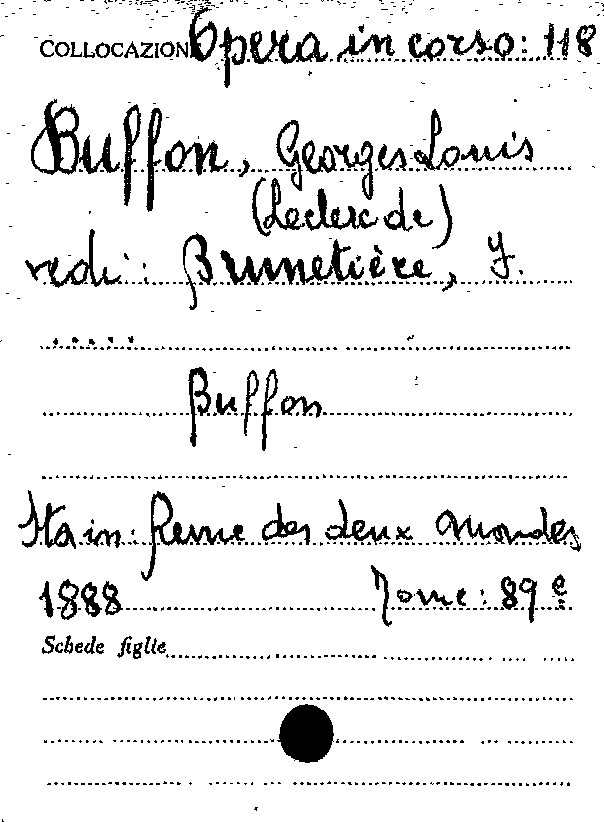 COLLOCAZION Opera in corso: 118
Buffon, Georges Louis
(Leclerc de)
vedi: Brunetière, F.
.....
Buffon
Sta in: Revue des deux Mondes
1888 Tome: 89e
Schede figlie